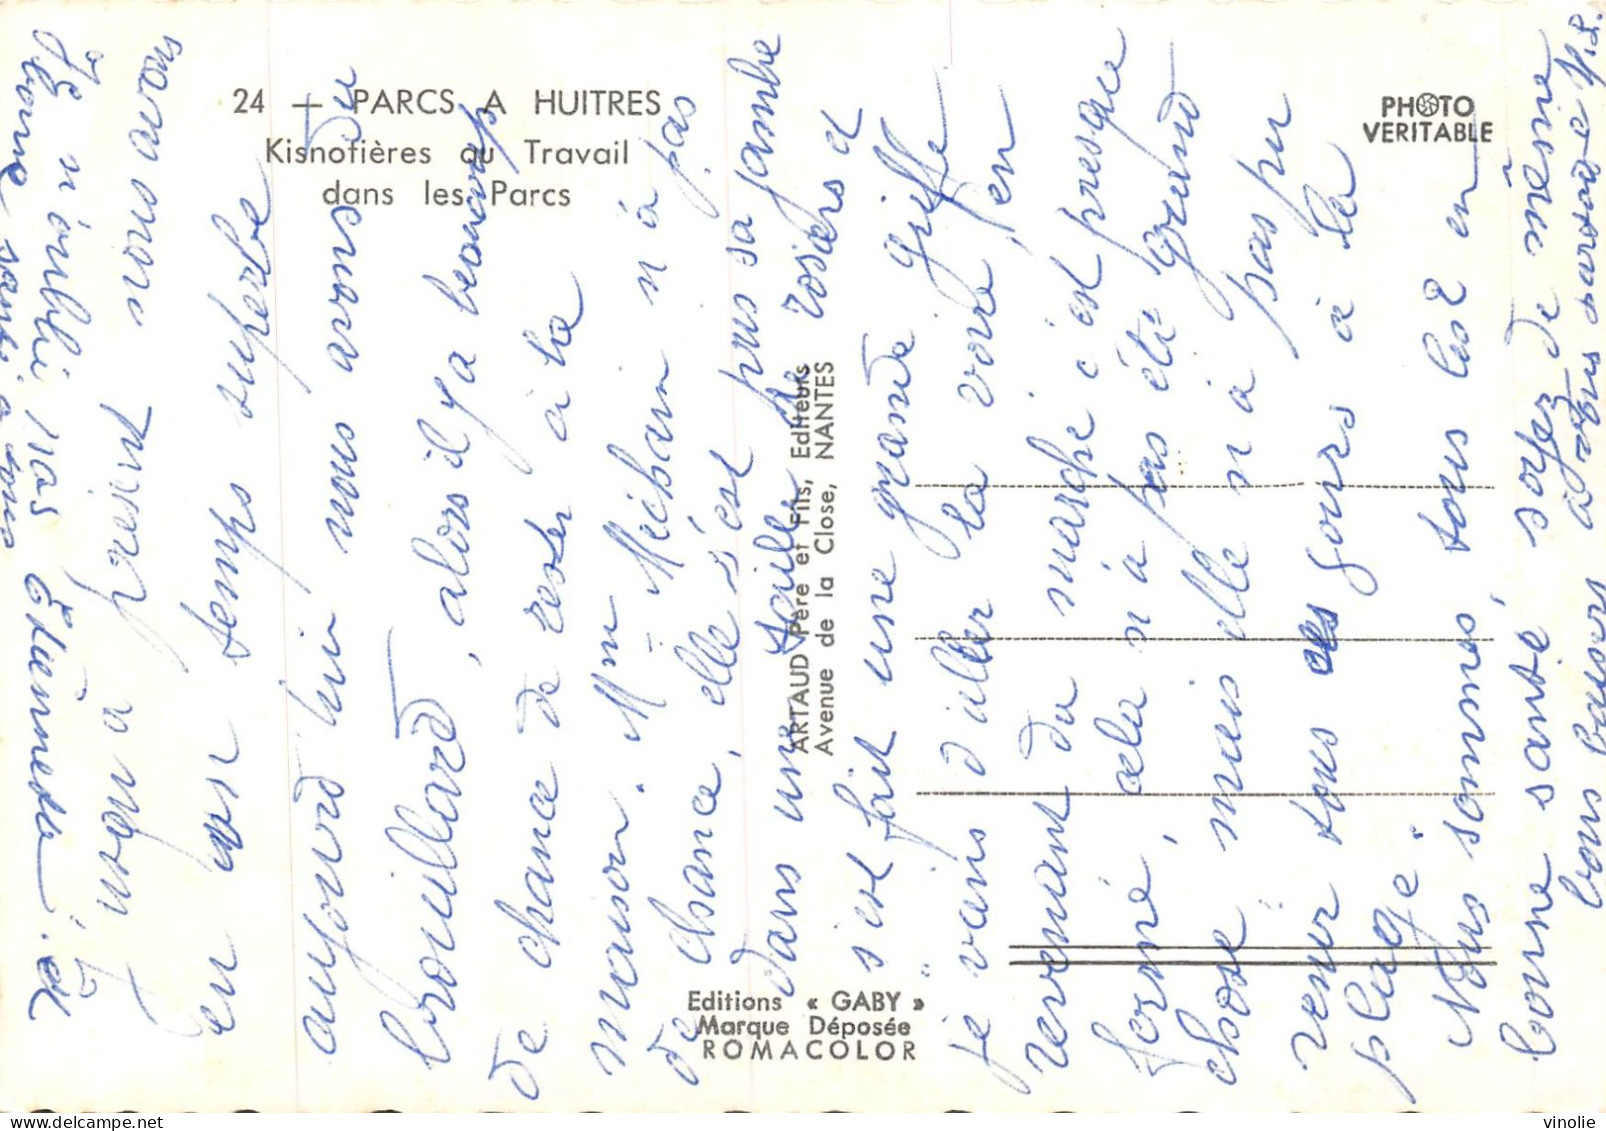 24 — PARCS A HUITRES
Kisnotières au Travail
dans les Parcs
PHOTO
VERITABLE
ARTAUD Père et Fils, Editeurs
Avenue de la Close, NANTES
Editions « GABY »
Marque Déposée
ROMACOLOR
Jusqu'à présent nous avons
eu un temps superbe
aujourd'hui nous avons du
brouillard, alors il y a beaucoup
de chance de rester à la
maison. Mme Méchain n'a pas
de chance, elle s'est pris sa jambe
dans une taille de rosiers et
s'est fait une grande griffe
je viens d'aller la voir, en
revenant du marché c'est presque
fermé, cela n'a pas été grand
chose, mais elle n'a pas pu
venir tous ces jours à la
plage.
Nous sommes, tous les 2 en
bonne santé, soyez de même
bons baisers à vous autres
Je n'oublie pas
bonne santé à vous
vinolie